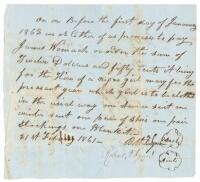 On or Before the first day of January
1862 we or Either of us promise to pay
James Womack or order the sum of
Twelve Dollars and fifty cents it being
for the Hire of a negro girl for the
present year which girl is to be clothed
in the usual way one summer suit one
winter suit one pair of shoes one pair
stockings one Blanket
21st February 1861